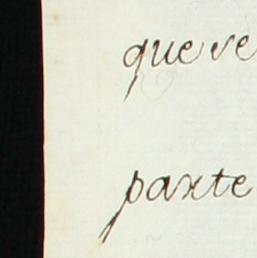 que ve
parte